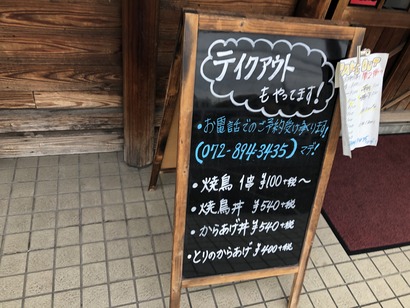 テイクアウト
もやってます!
・お電話でのご予約受け承ります
(072-894-3435)マデ!
・焼鳥 1本 ¥100+税〜
・焼鳥丼 ¥540+税
・からあげ丼 ¥540+税
・とりのからあげ ¥400+税